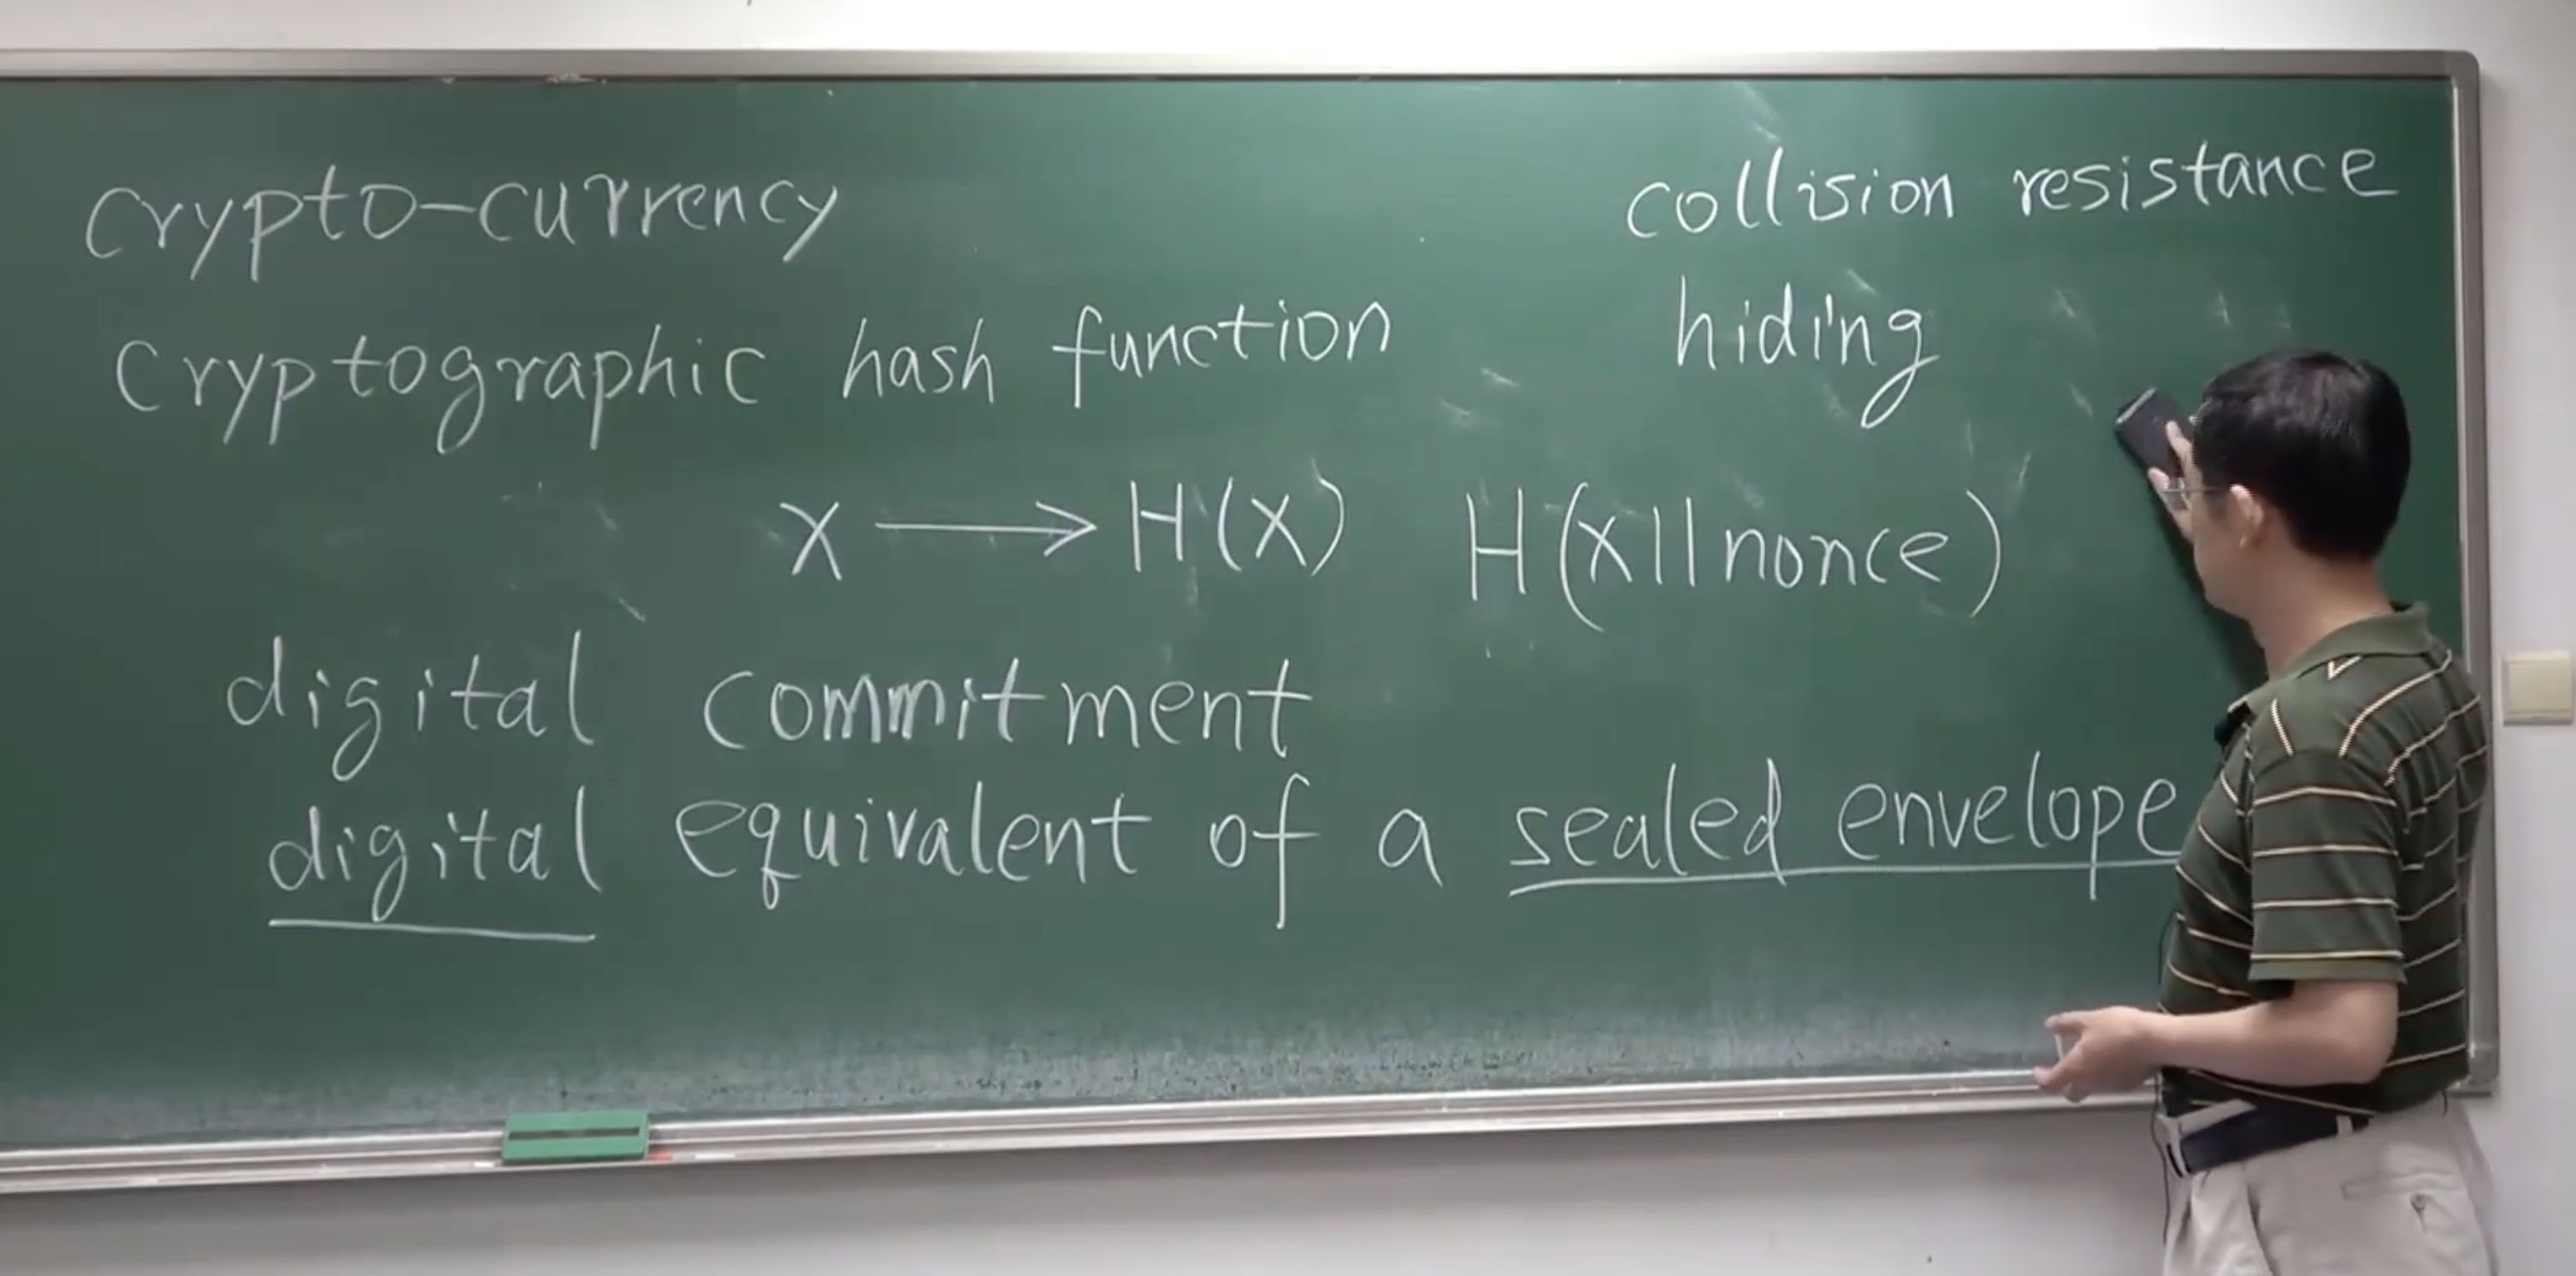 crypto-currency
cryptographic hash function
collision resistance
hiding
X ⟶ H(X) H(X||nonce)
digital commitment
digital equivalent of a sealed envelope